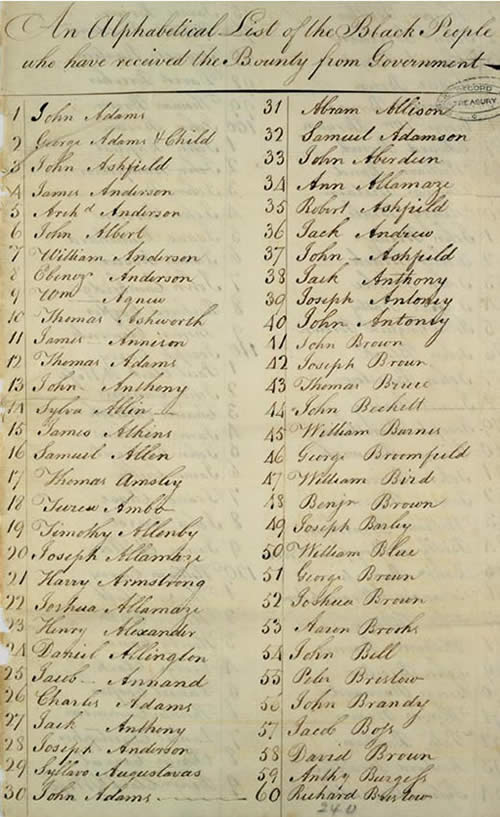 An Alphabetical List of the Black People
who have received the Bounty from Government
RECORD
TREASURY
1 John Adams
2 George Adams & Child
3 John Ashfield
4 James Anderson
5 Archd Anderson
6 John Albert
7 William Anderson
8 Ebenezr Anderson
9 Wm Agnew
10 Thomas Ashworth
11 James Annerson
12 Thomas Adams
13 John Anthony
14 Sylva Allin
15 James Atkins
16 Samuel Allen
17 Thomas Amsley
18 Ambo
19 Timothy Allenby
20 Joseph Allamaze
21 Harry Armstrong
22 Joshua Allamaze
23 Henry Alexander
24 Daniel Allington
25 Jacob Annand
26 Charles Adams
27 Jack Anthony
28 Joseph Anderson
29 Augustavas
30 John Adams
31 Abram Allison
32 Samuel Adamson
33 John Aberdeen
34 Ann Allamaze
35 Robert Ashfild
36 Jack Andrew
37 John Ashfild
38 Jack Anthony
39 Joseph Antoney
40 John Antoney
41 John Brown
42 Joseph Brown
43 Thomas Bruce
44 John Beckett
45 William Burnes
46 George Broomfield
47 William Bird
48 Benjn Brown
49 Joseph Barley
50 William Blue
51 George Brown
52 Joshua Brown
53 Aaron Brooks
54 John Bell
55 Peter Bristow
56 John Brandy
57 Jacob Boss
58 David Brown
59 Anthy Burgess
60 Richard Bristow
240